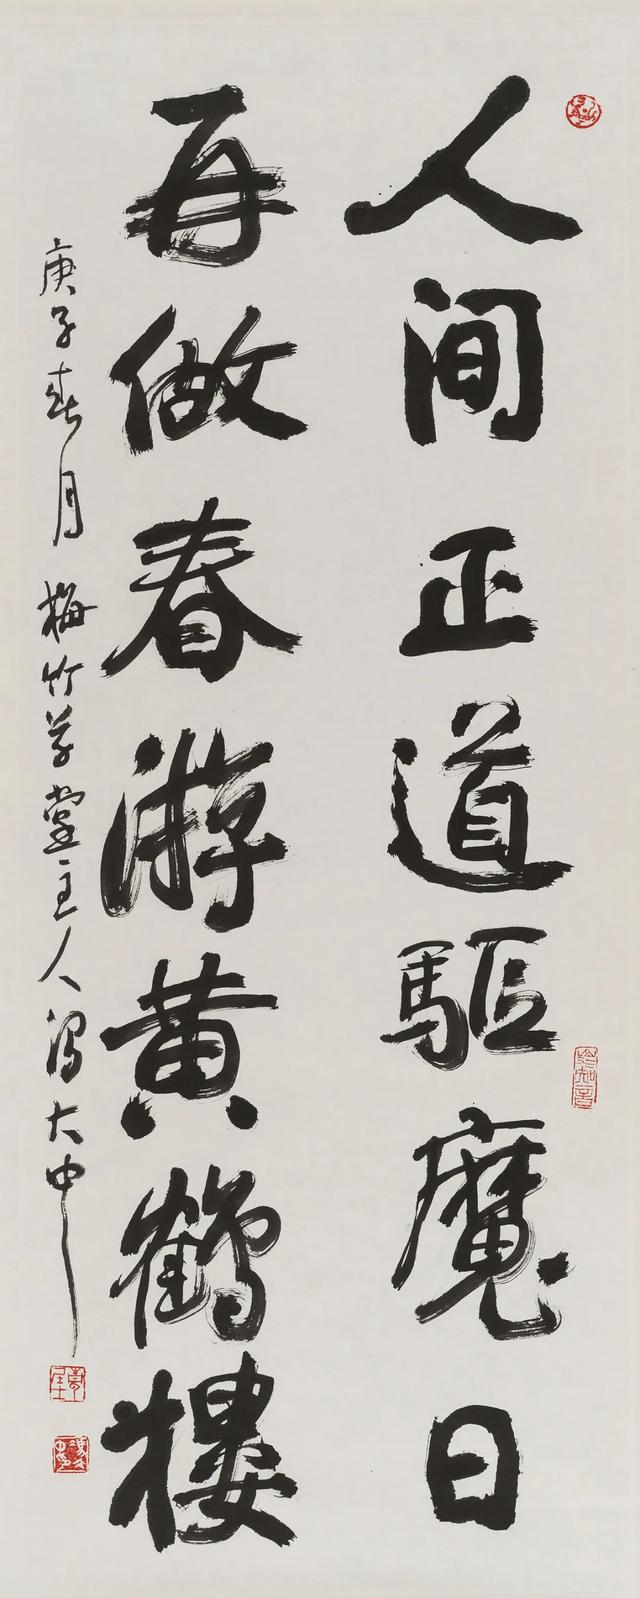 人间正道驱魔日
再做春游黄鶴樓
庚子春月 梅竹草堂主人 大中